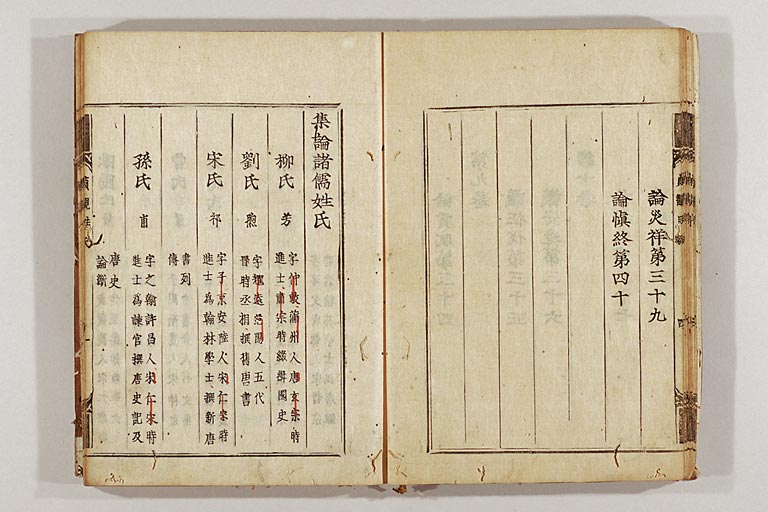 論灾祥第三十九
論愼終第四十
集論諸儒姓氏
柳氏 芳
字仲敷蒲州人唐玄宗時
進士肅宗時綴緝國史
劉氏 煦
字耀遠涿
人五代
晉時丞相撰舊唐書
宋氏 祁
字子京安陸人宋仁宋時
進士爲翰林學士撰新唐
書列
傳
孫氏 甫
字之翰許昌人宋仁宋時
進士爲諫官撰唐史記及
唐史
論斷